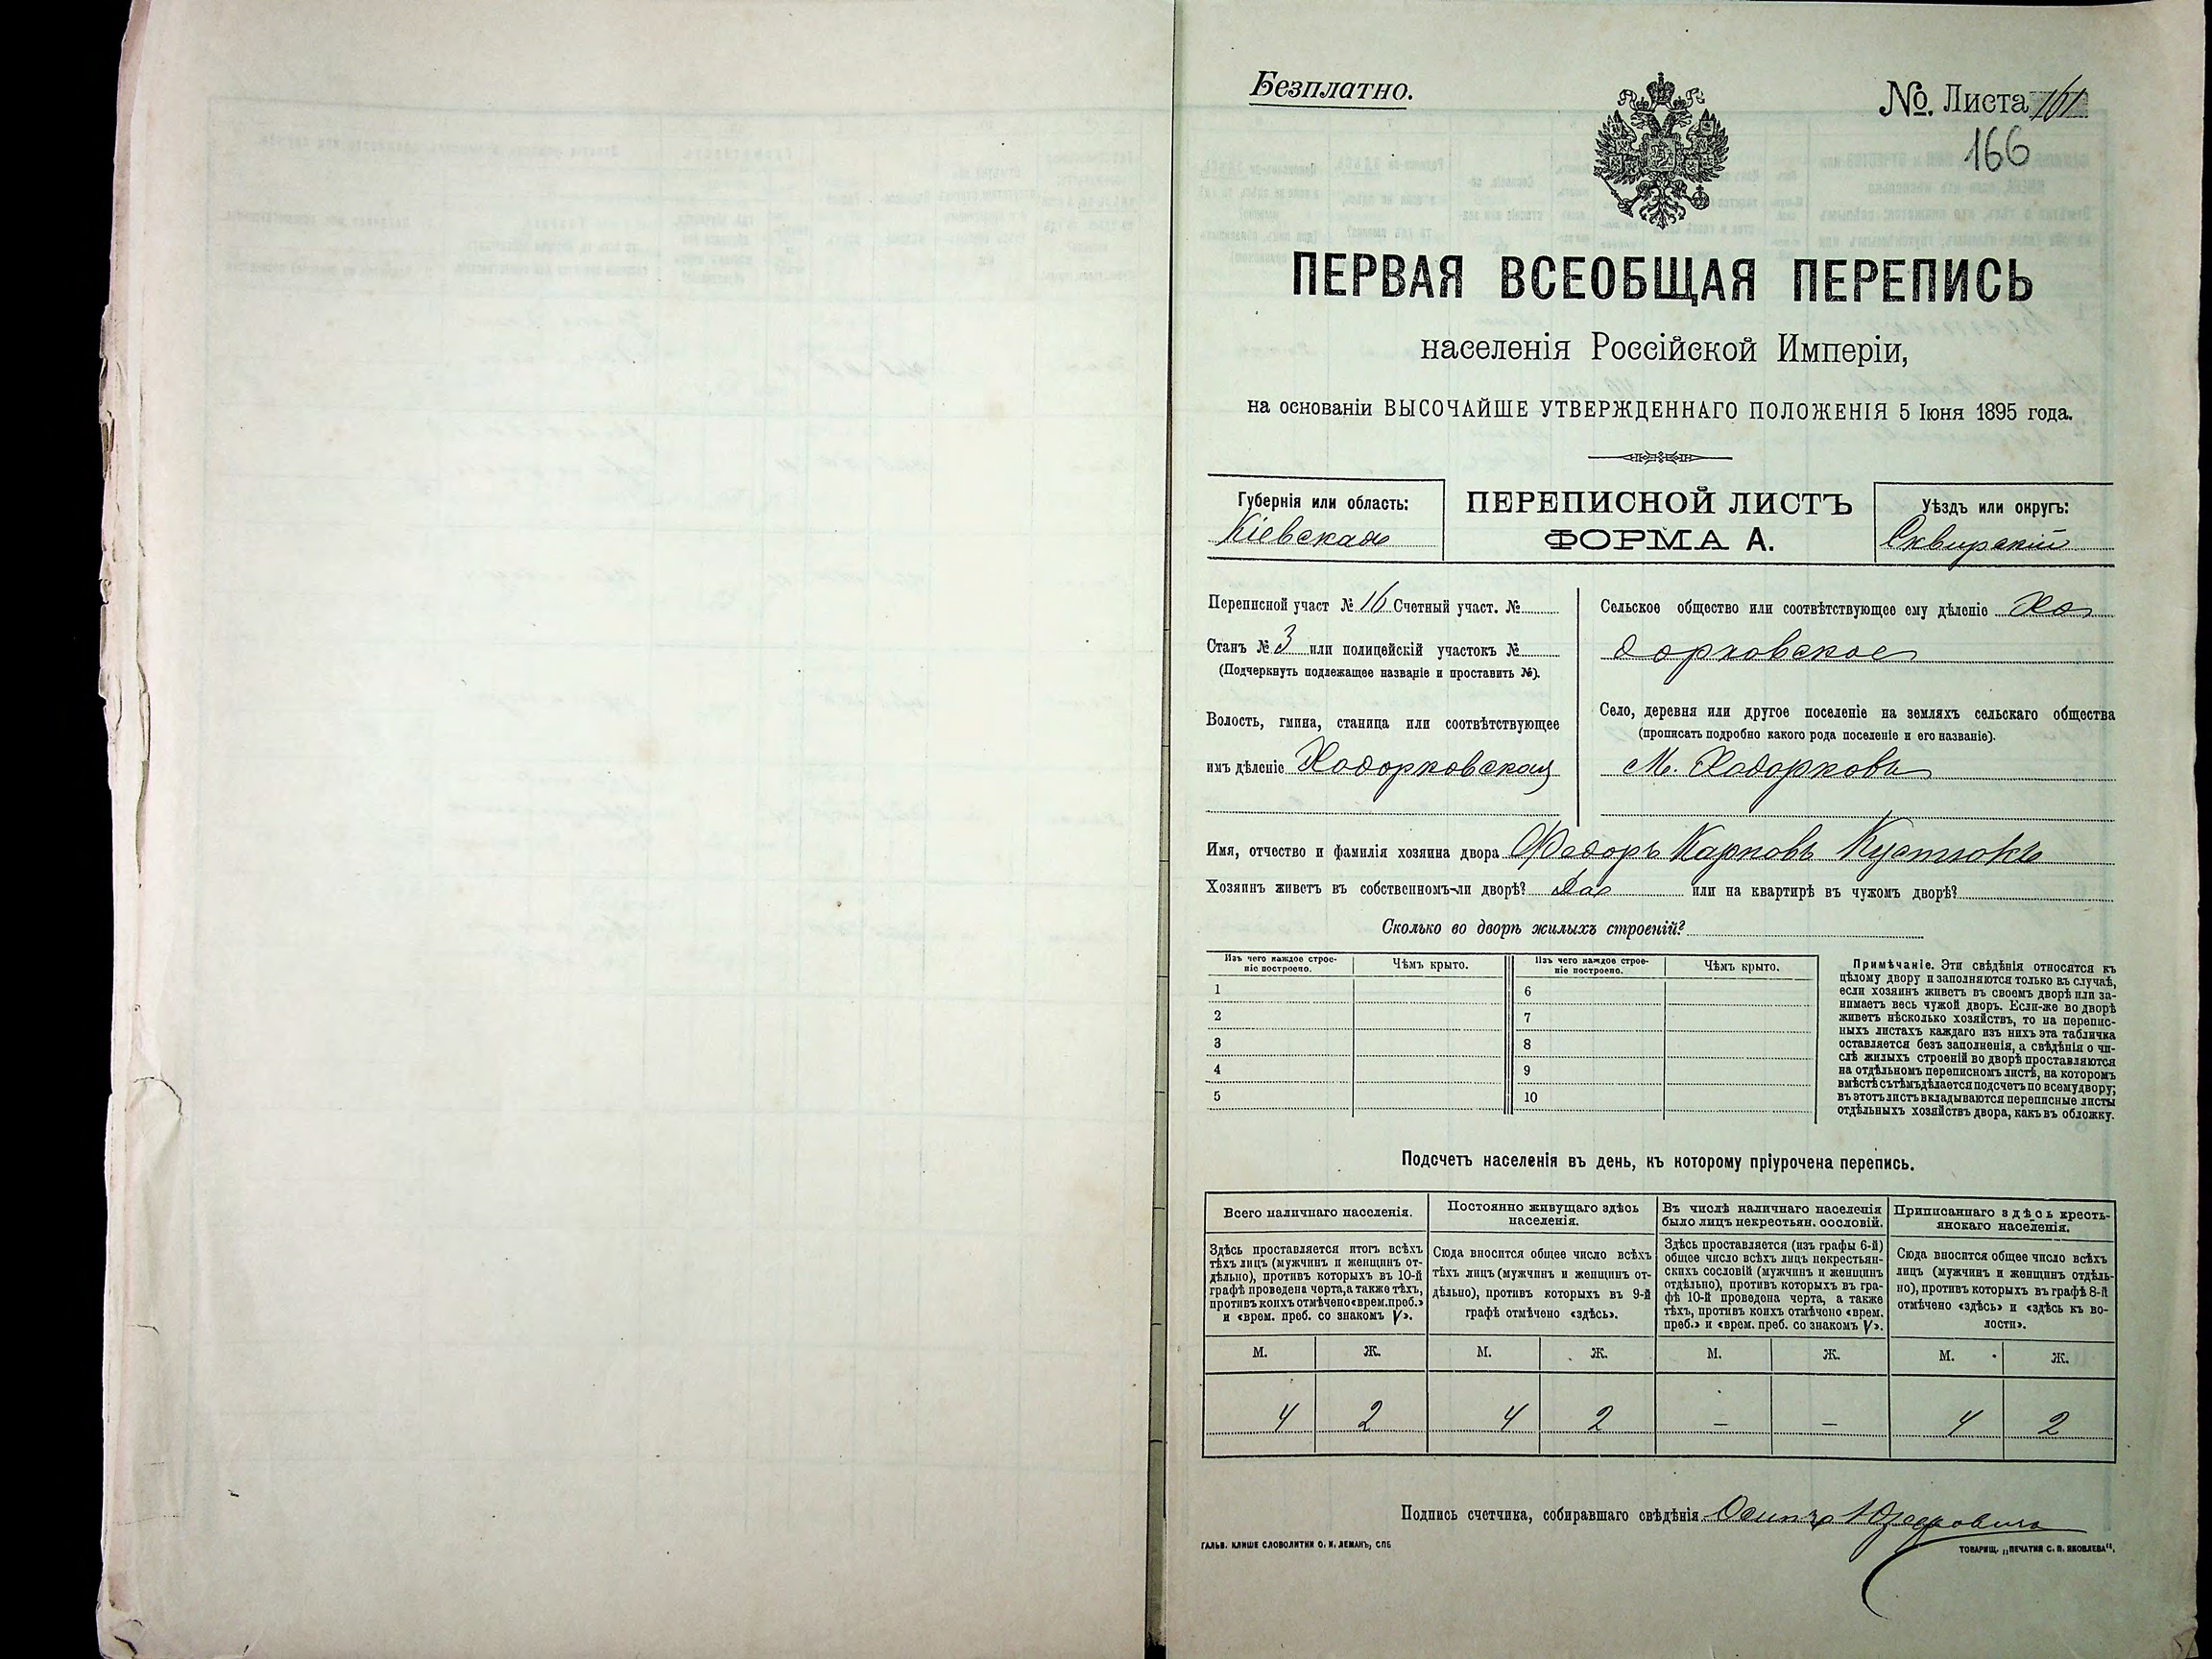 Безплатно.
№. Листа 161
166
ПЕРВАЯ ВСЕОБЩАЯ ПЕРЕПИСЬ
населенія Россійской Имперіи,
на основаніи ВЫСОЧАЙШЕ УТВЕРЖДЕННАГО ПОЛОЖЕНІЯ 5 Іюня 1895 года.
Губернія или область:
Кіевская
ПЕРЕПИСНОЙ ЛИСТЪ
ФОРМА А.
Уѣздъ или округъ:
Сквирскій
Переписной участ № 16 Счетный участ. №
Станъ № 3 или полицейскій участокъ №
(Подчеркнуть подлежащее названіе и проставить №).
Волость, гмина, станица или соотвѣтствующее
имъ дѣленіе Ходорковская
Сельское общество или соотвѣтствующее ему дѣленіе Хо
дорковское
Село, деревня или другое поселеніе на земляхъ сельскаго общества
(прописать подробно какого рода поселеніе и его названіе).
М. Ходорковъ
Имя, отчество и фамилія хозяина двора Федоръ Карповъ
Хозяинъ живетъ въ собственномъ-ли дворѣ? Да или на квартирѣ въ чужомъ дворѣ?
Сколько во дворѣ жилыхъ строеній?
Изъ чего каждое строе-
ніе построено.
Чѣмъ крыто.
Изъ чего каждое строе-
ніе построено.
Чѣмъ крыто.
1 6
2 7
3 8
4 9
5 10
Примѣчаніе. Эти свѣдѣнія относятся къ
цѣлому двору и заполняются только въ случаѣ,
если хозяинъ живетъ въ своемъ дворѣ или за-
нимаетъ весь чужой дворъ. Если-же во дворѣ
живетъ нѣсколько хозяйствъ, то на перепис-
ныхъ листахъ каждаго изъ нихъ эта табличка
оставляется безъ заполненія, а свѣдѣнія о чи-
слѣ жилыхъ строеній во дворѣ проставляются
на отдѣльномъ переписномъ листѣ, на которомъ
вмѣстѣ съ тѣмъ дѣлается подсчетъ по всему двору;
въ этотъ листъ вкладываются переписные листы
отдѣльныхъ хозяйствъ двора, какъ въ обложку.
Подсчетъ населенія въ день, къ которому пріурочена перепись.
Всего наличнаго населенія.
Здѣсь проставляется итогъ всѣхъ
тѣхъ лицъ (мужчинъ и женщинъ от-
дѣльно), противъ которыхъ въ 10-й
графѣ проведена черта, а также тѣхъ,
противъ коихъ отмѣчено «врем. преб.»
и «врем. преб. со знакомъ V».
Постоянно живущаго здѣсь
населенія.
Сюда вносится общее число всѣхъ
тѣхъ лицъ (мужчинъ и женщинъ от-
дѣльно), противъ которыхъ въ 9-й
графѣ отмѣчено «здѣсь».
Въ числѣ наличнаго населенія
было лицъ некрестьян. сословій.
Здѣсь проставляется (изъ графы 6-й)
общее число всѣхъ лицъ некрестьян-
скихъ сословій (мужчинъ и женщинъ
отдѣльно), противъ которыхъ въ гра-
фѣ 10-й проведена черта, а также
тѣхъ, противъ коихъ отмѣчено «врем.
преб.» и «врем. преб. со знакомъ V».
Приписаннаго здѣсь кресть-
янскаго населенія.
Сюда вносится общее число всѣхъ
лицъ (мужчинъ и женщинъ отдѣль-
но), противъ которыхъ въ графѣ 8-й
отмѣчено «здѣсь» и «здѣсь къ во-
лости».
М. Ж. М. Ж. М. Ж. М. Ж.
4 2 4 2 – – 4 2
Подпись счетчика, собиравшаго свѣдѣнія
ГАЛЬВ. КЛИШЕ СЛОВОЛИТНИ О. И. ЛЕМАНЪ, СПБ
ТОВАРИЩ. „ПЕЧАТНЯ С. П. ЯКОВЛЕВА“.